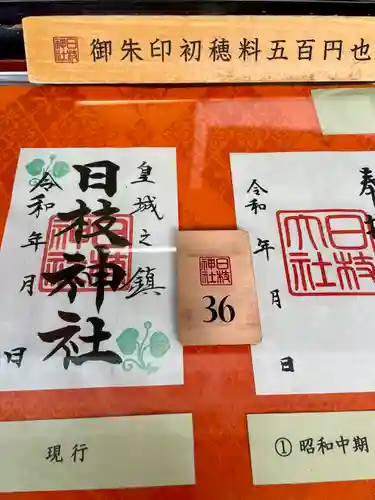 日枝神社
御朱印初穂料五百円也
皇城之鎮
日枝神社
令和 年 月 日
日枝神社
日枝神社
36
奉
令和 年 月 日
日枝大社
現行
① 昭和中期